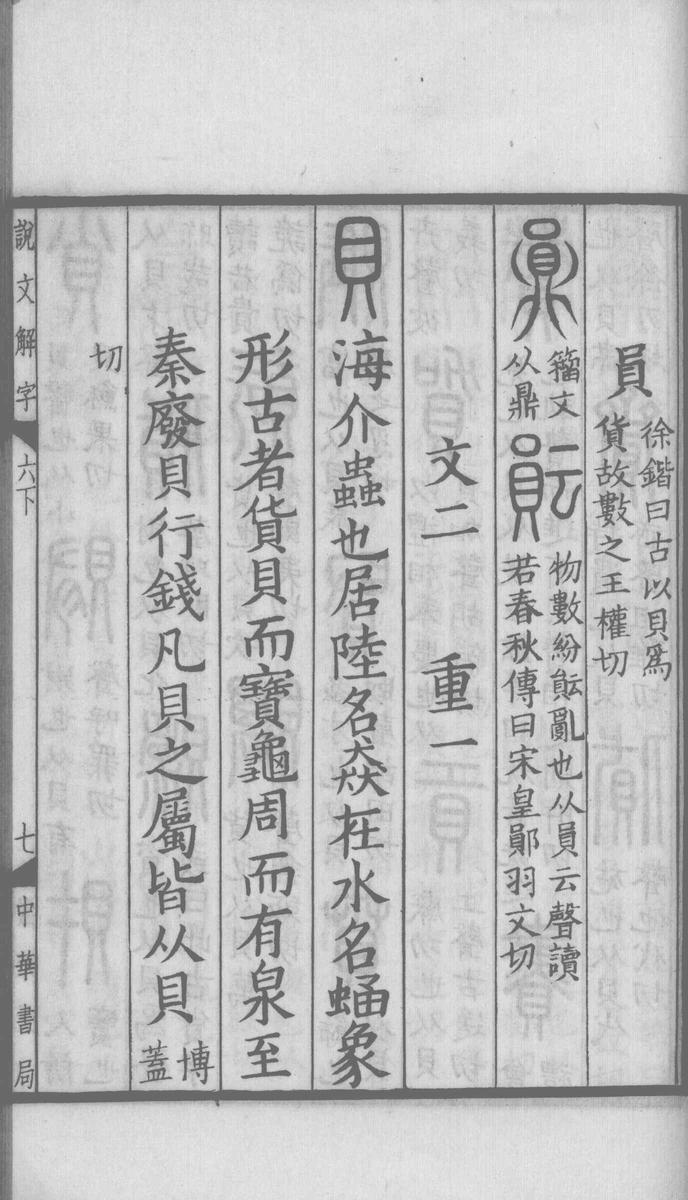 員
徐鍇曰古以貝爲
貨故數之王權切
鼎
籒文
从鼎
𧶊
物數紛𧶊亂也从員云聲讀
若春秋傳曰宋皇鄖羽文切
文二 重一
貝海介蟲也居陸名猋在水名蜬象
形古者貨貝而寶龜周而有泉至
秦廢貝行錢凡貝之屬皆从貝
博
蓋
切
說文解字 六下 七 中華書局